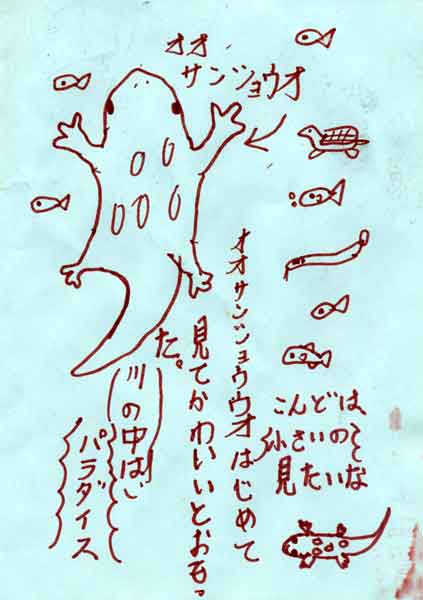 オオ
サンショウオ
オオサンショウウオはじめて
見てかわいいとおもっ
た。
川の中は
パラダイス
こんどは、
小さいのを
見たいな